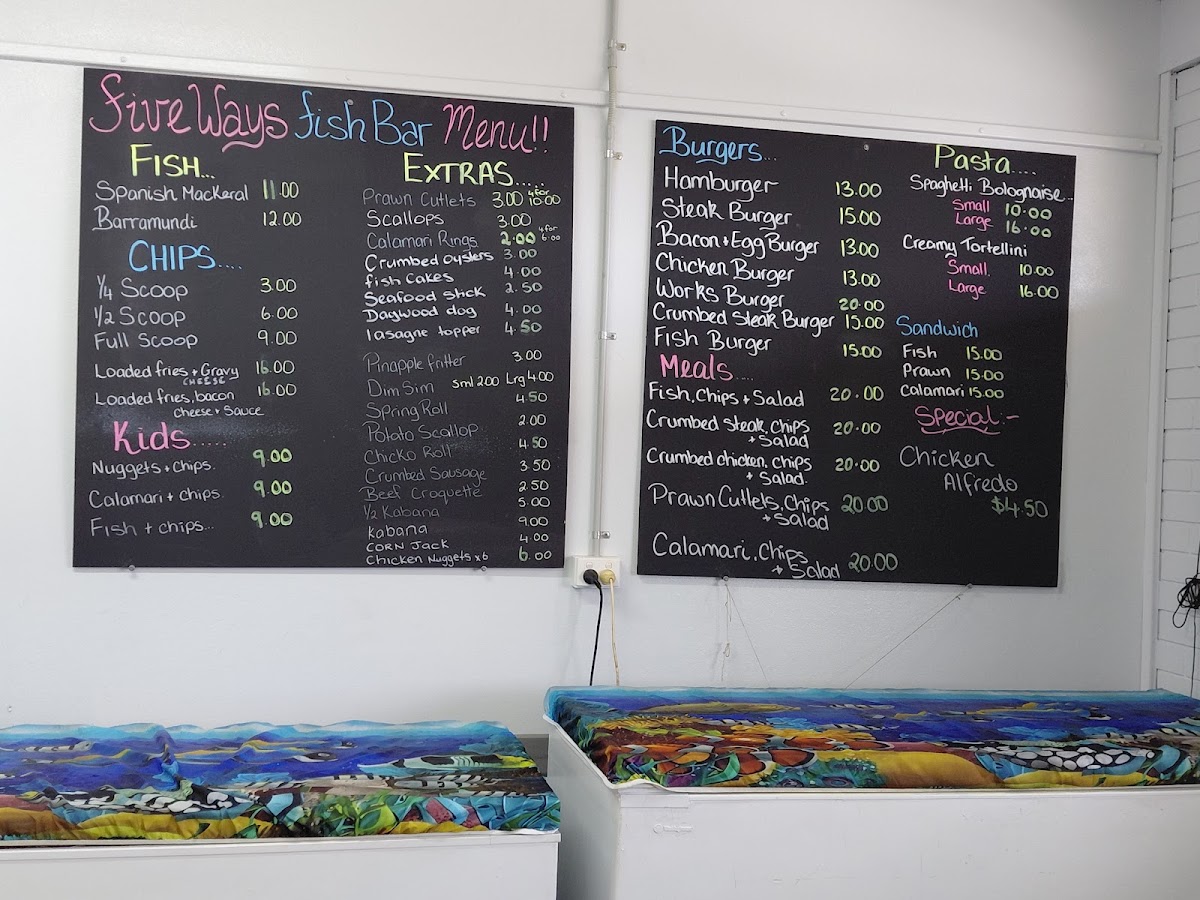 Five Ways fish Bar Menu!!
FISH...
Spanish Mackeral 11.00
Barramundi 12.00
CHIPS....
1/4 Scoop 3.00
1/2 Scoop 6.00
Full Scoop 9.00
Loaded fries + Gravy 16.00
CHEESE
Loaded fries, bacon 16.00
cheese + Sauce
Kids.....
Nuggets + chips. 9.00
Calamari + chips. 9.00
Fish + chips... 9.00
EXTRAS.....
Prawn Cutlets 3.00 4 for 10.00
Scallops 3.00
Calamari Rings 2.00 4 for 6.00
Crumbed oysters 3.00
fish Cakes 4.00
Seafood stick 2.50
Dagwood dog 4.00
lasagne topper 4.50
Pinapple fritter 3.00
Dim Sim sml 2.00 Lrg 4.00
Spring Roll 4.50
Potato Scallop 2.00
Chicko Roll 4.50
Crumbed Sausage 3.50
Beef Croquette 2.50
1/2 Kabana 5.00
Kabana 9.00
CORN JACK 4.00
Chicken Nuggets x 6 6.00
Burgers...
Hamburger 13.00
Steak Burger 15.00
Bacon + Egg Burger 13.00
Chicken Burger 13.00
Works Burger 20.00
Crumbed Steak Burger 15.00
Fish Burger 15.00
Meals....
Fish, Chips + Salad 20.00
Crumbed steak, chips 20.00
+ Salad
Crumbed chicken, chips 20.00
+ Salad.
Prawn Cutlets, Chips 20.00
+ Salad
Calamari, Chips 20.00
+ Salad
Pasta....
Spaghetti Bolognaise...
Small 10.00
Large 16.00
Creamy Tortellini
Small. 10.00
Large 16.00
Sandwich
Fish 15.00
Prawn 15.00
Calamari 15.00
Special:-
Chicken
Alfredo
$4.50